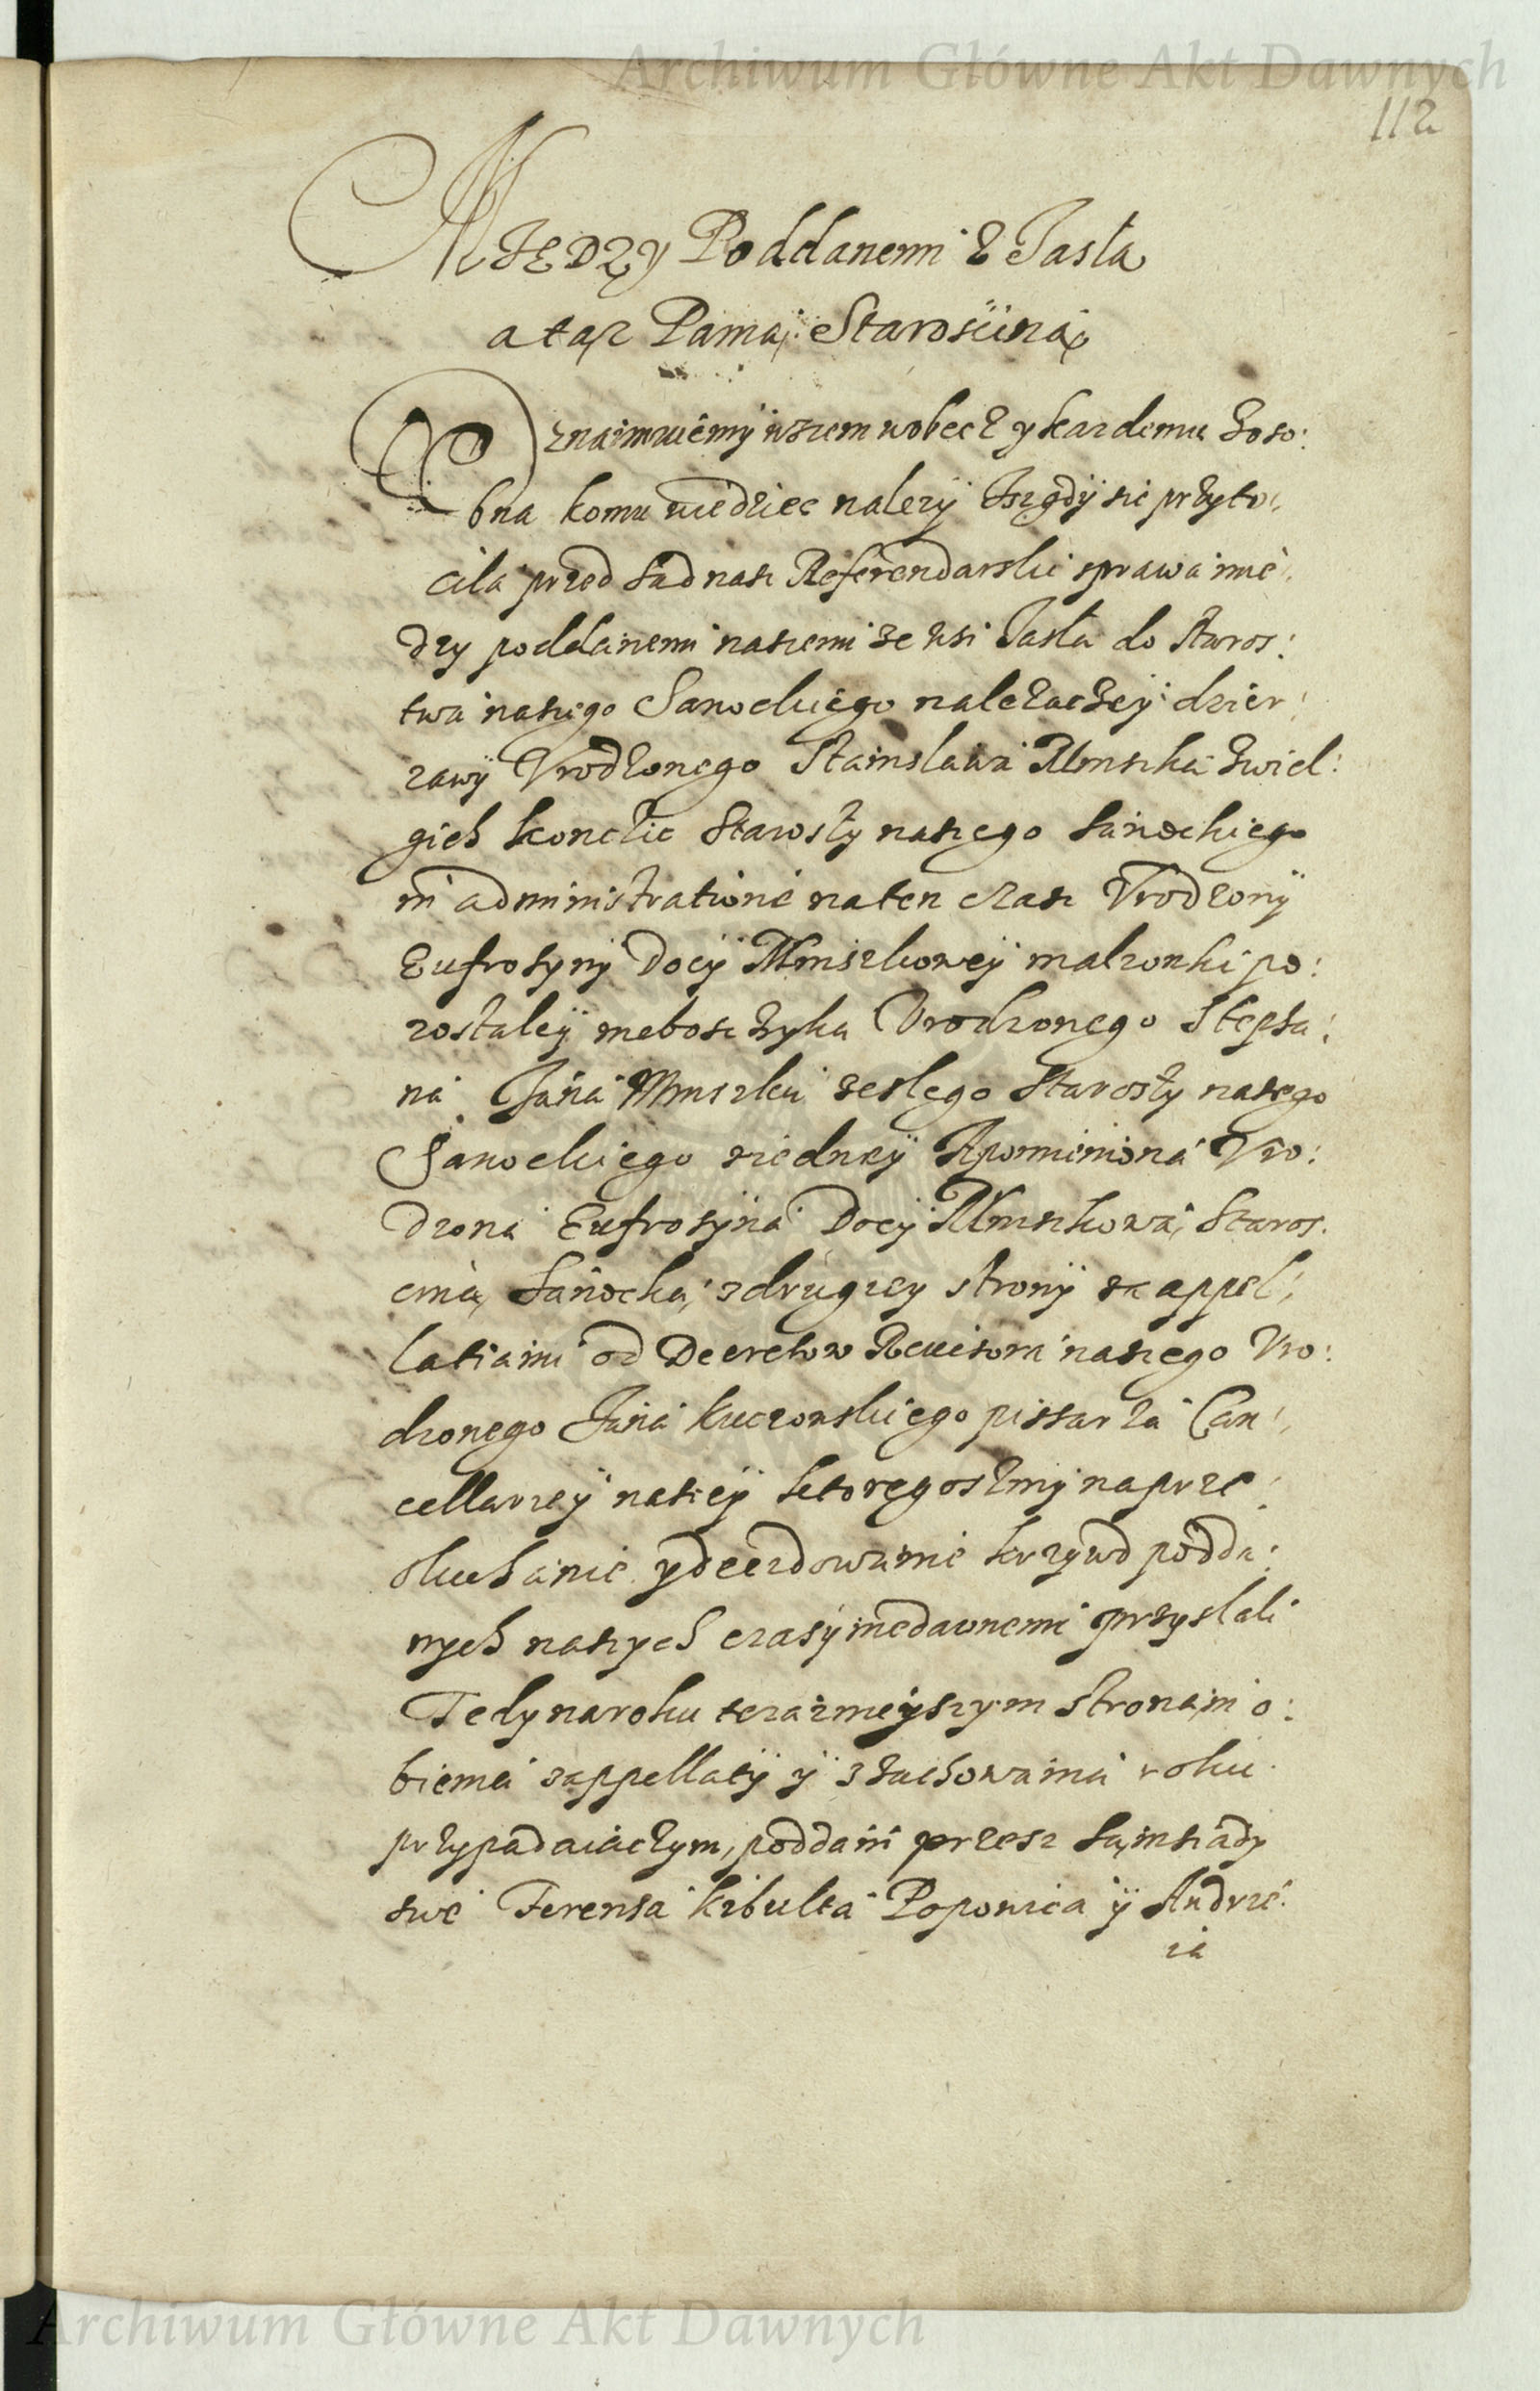 Archiwum Główne Akt Dawnych
112
MIĘDZY Poddanemi z Jasła
a taz Panią Starosciną
Oznaimuiemy wszem wobec z y kazdemu zoso:
bna komu wiedziec nalezy Isz gdÿ sie przyto:
cila przed sad nasz Referendarski sprawa mie:
dzy poddanemi naszemi ze wsi Jasła do Staros:
twa naszego Sanockiego nalezaczey dzier:
zawÿ Vrodzonego Stanislawa Mniszka z wiel:
gich Konczic Starosty naszego Sanockiego
in administratione na ten czasz Vrodzonÿ
Eufrosyny Mniszkowey malzonki po:
zostaleÿ nieboszczyka Vrodzonego Stepha:
na Jana Mniszka zeslego Starosty naszego
Sanockiego ziedneÿ A pomieniona Vro:
dzona Eufrosÿna Mniszkowa, Staros:
cina, Sanocka, z drugiey stronÿ za appel:
latiami od Decretow Reuisora naszego Vro:
dzonego Jana Kuczowskiego pissarza Can:
cellarieÿ naszeÿ ktoregosmy na prze:
sluchanie y decidowanie krzywd podda:
nych naszych czasy niedawnemi przyslali
Tedy na roku teraznieyszym stronam o:
biema z appellatÿ ÿ z zachowania roku
przypadaiaczym, poddani przesz samsiady
swe Ferensa Popowica ÿ Andrze:
ia
Archiwum Główne Akt Dawnych